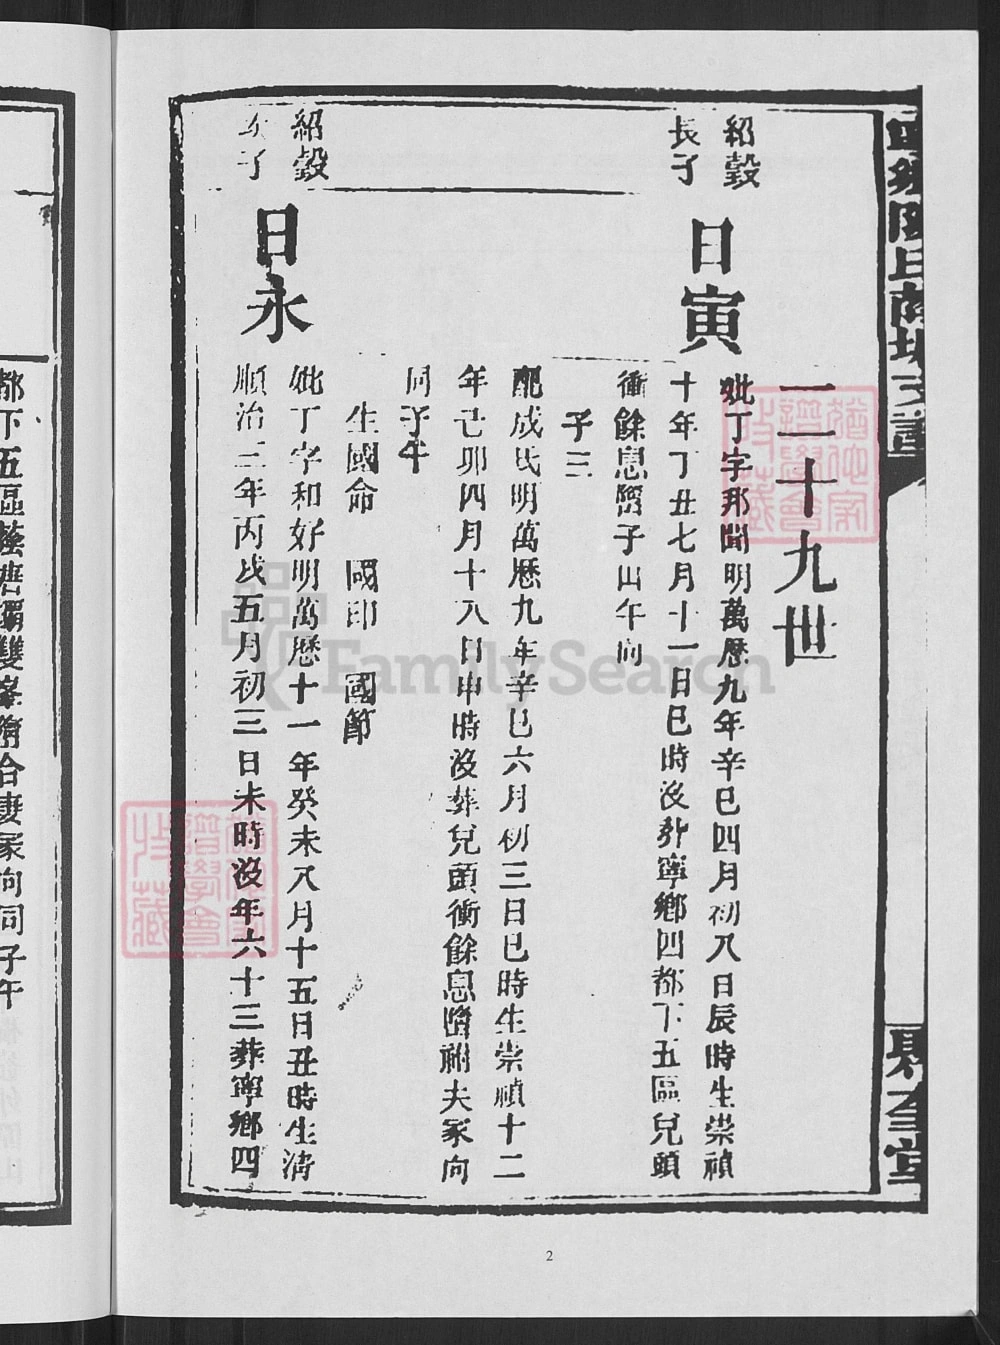 二十九世
紹毂
長子
日寅
妣丁字那聞明萬歷九年辛巳四月初八日辰時生崇禎
十年丁丑七月十一日巳時沒葬寧鄉四都下五區兒頭
衝餘息磡子山午向
子三
配成氏明萬歷九年辛巳六月初三日巳時生崇禎十二
年己卯四月十八日申時沒葬兒頭衝餘息磡祔夫冢向
同子午
生國命 國印 國節
紹毂
次子
日永
妣丁字和好明萬歷十一年癸未八月十五日丑時生清
順治三年丙戌五月初三日未時沒年六十三葬寧鄉四
都下五區 雙峯 合妻冢向同子午
2
FamilySearch